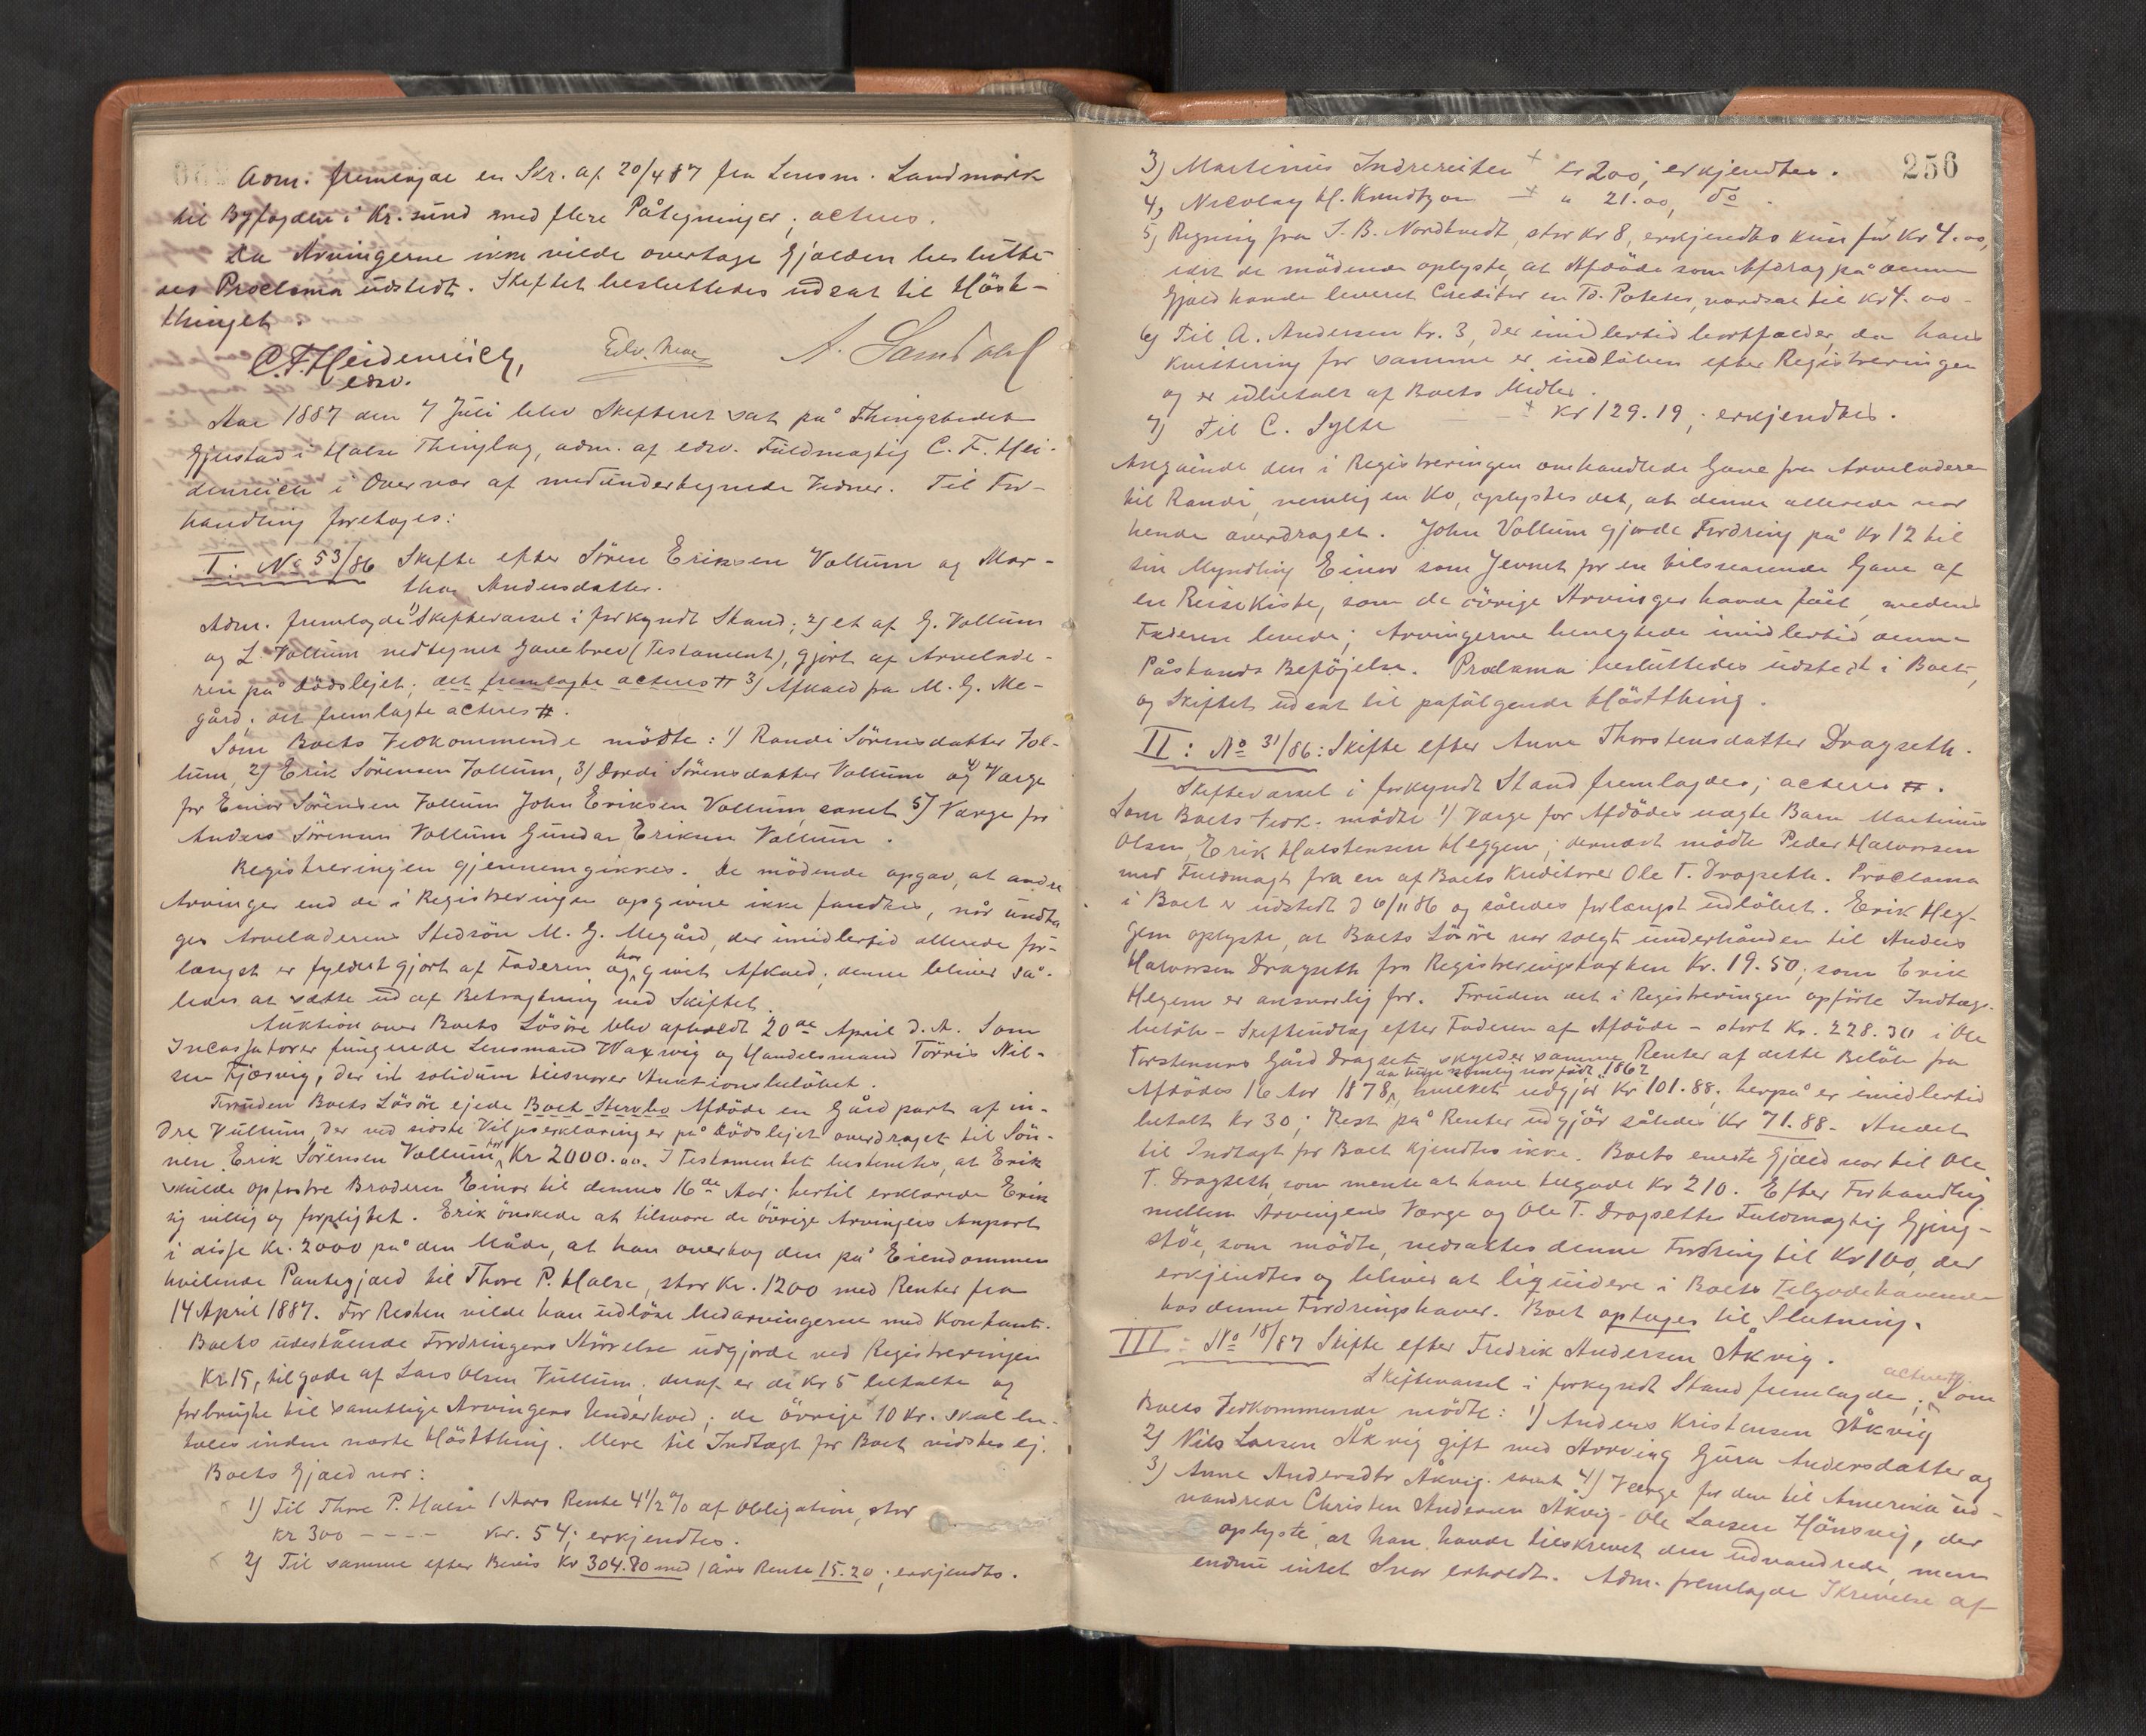 Adm. fremlagde en Skr. af 20/4 87 fra Lensm. Landmark
til Byfogden i Kr.sund med flere Påtegninger; acteres.
Da Arvingerne ikke vilde overtage Gjælden beslutte-
des Proclama udstedt. Skiftet besluttedes udsat til Høst-
thinget.
C. F. Heidenreich,
edsv.
Edv.
A. Sandvahl
Aar 1887 den 7 Juli blev Skifteret sat på Thingstedet
Gjustad i Halse Thinglag, adm. af edsv. Fuldmægtig C. F. Hei-
denreich i Overvær af medundertegnede Vidner. Til For-
handling foretages:
I: No 53/86 Skifte efter Sören Eriksen Vollum og Mar-
tha Andersdatter.
Adm. fremlagde 1) Skiftevarsel i forkyndt Stand; 2) et af G. Vollum
og L. Vollum nedtegnet Gavebrev (Testament), gjort af Arvelade-
ren på dödslejet; det fremlagte acteres # 3) Afkald fra M. G. Me-
gård; det fremlagte acteres #.
Som Boets Vedkommende mödte: 1) Randi Sörensdatter Vol-
lum, 2) Erik Sörensen Vollum, 3) Dordi Sörensdatter Vollum og 4) Værge
for Einar Sörensen Vollum John Eriksen Vollum, samt 5) Værge for
Anders Sörensen Vollum Gunder Eriksen Vollum.
Registreringen gjennemgikkes. De mödende opgav, at andre
Arvinger end de i Registreringen opgivne ikke fandtes, når undta-
ges Arveladerens Stedsön M. G. Megård, der imidlertid allerede for-
længst er fyldestgjort af Faderen og har givet Afkald; denne bliver så-
ledes at sætte ud af Betragtning ved Skiftet.
Auktion over Boets Lösöre blev afholdt 20de April d. A. Som
Incassatorer fungerede Lensmand Waxwig og Handelsmand Törris Nil-
sen Fjærvig, der in solidum tilsvarer Auktionsbelöbet.
Foruden Boets Lösöre ejede Boet Stervbo Afdöde en Gård part af in-
dre Vullum, der ved sidste Viljeserklæring er på dödslejet overdraget til Sön-
nen Erik Sörensen Vollum for Kr 2000.00. I Testamentet bestemtes, at Erik
skulde opfostre Broderen Einar til dennes 16de Aar; hertil erklærede Erik
sig villig og forpligtet. Erik önskede at tilsvare de övrige Arvingers Anpart
i disse Kr. 2000 på den Måde, at han overtog den på Eiendommen
hvilende Pantegjæld til Thore P. Halse, stor Kr. 1200 med Renter fra
14 April 1887. For Resten vilde han udlöse Medarvingerne med Kontant.
Boets udestående Fordringers Störrelse udgjorde ved Registreringen
Kr 15, tilgode af Lars Olsen Vullum; deraf er de Kr 5 betalte og
forbrugte til samtlige Arvingers Underhold; de övrige 10 Kr. skal be-
tales inden næste Höstthing. Mere til Indtægt for Boet vidstes ej.
Boets Gjæld var:
1) Til Thore P. Halse 1 Aars Rente 4 1/2 % af Obligation, stor
Kr 300 - - - - Kr. 54; erkjendtes.
2) Til samme efter Bevis Kr 304.80 med 1 års Rente 15.20; erkjendtes.
256
3) Martinus Indrereiten + Kr 200; erkjendtes.
4) Nicolay H. Knudtzon - + " 21.00, do.
5) Regning fra J. B. Nordtvedt, stor Kr 8, erkjendtes kun for Kr 4.00,
idet de mödende oplyste, at Afdöde som Afdrag på denne
Gjæld havde leveret Creditor en Td. Poteter, værdsat til Kr 4.00 -
6) Til A. Andersen Kr. 3, der imidlertid bortfalder, da hans
Kvittering for samme er indlöben efter Registreringen
og er udbetalt af Boets Midler.
7) Til C. Sylte - - + Kr 129.19; erkjendtes.
Angående den i Registreringen omhandlede Gave fra Arveladeren
til Randi, nemlig en Ko, oplystes det, at denne allerede var
hende overdraget. John Vollum gjorde Fordring på Kr 12 til
sin Myndling Einar som Jevnet for en tilsvarende Gave af
en Reisekiste, som de övrige Arvinger havde fået, medens
Faderen levede; Arvingerne benegtede imidlertid denne
Påstands Beföjelse. Proclama besluttedes udstedt i Boet,
og Skiftet udsat til påfölgende Höstthing.
II: No 31/86: Skifte efter Anne Thorstensdatter Dragseth.
Skiftevarsel i forkyndt Stand fremlagdes; acteres #.
Som Boets Vedk. mödte 1) Værge for Afdödes uægte Barn Martinus
Olsen, Erik Halstensen Heggem; dernæst mödte Peder Halvorsen
med Fuldmagt fra en af Boets Kreditorer Ole T. Dragseth. Proclama
i Boet er udstedt d 6/11 86 og således forlængst udlöbet. Erik Heg-
gem oplyste, at Boets Lösöre var solgt underhånden til Anders
Halvorsen Dragseth for Registreringstaxten Kr. 19.50, som Erik
Hegem er ansvarlig for. Foruden det i Registreringen opförte Indtægs-
belöb - Skifteudlæg efter Faderen af Afdöde - stort Kr. 228.30 i Ole
Torstensens Gård Dragset, skylder samme Renter af dette Belöb fra
Afdödes 16 Aar 1878, da hun nemlig var födt 1862, hvilket udgjör Kr 101.88; herpå er imidlertid
betalt Kr 30; Rest på Renter udgjör således Kr 71.88. Andet
til Indtægt for Boet kjendtes ikke. Boets eneste Gjæld var til Ole
T. Dragseth, som mente at have tilgode Kr 210. Efter Forhandling
mellem Arvingens Værge og Ole T. Dragseths Fuldmægtig Gjeng-
stöe, som mödte, nedsattes denne Fordring til Kr 100, der
erkjendtes og bliver at liquidere i Boets Tilgodehavende
hos denne Fordringshaver. Boet optages til Slutning.
III: No 18/87 Skifte efter Fredrik Andersen Åkvig.
Skiftevarsel i forkyndt Stand fremlagdes; acteres #. Som
Boets Vedkommende mödte: 1) Anders Kristensen Åkvig
2) Nils Larsen Åkvig gift med Arving Guru Andersdatter og
3) Anne Andersdtr Åkvig. samt 4) Værge for den til Amerika ud-
vandrede Christen Andersen Åkvig - Ole Larsen Hönsvig, der
oplyste, at han havde tilskrevet den udvandrede, men
endnu intet Svar erholdt. Adm. fremlagde Skrivelse af